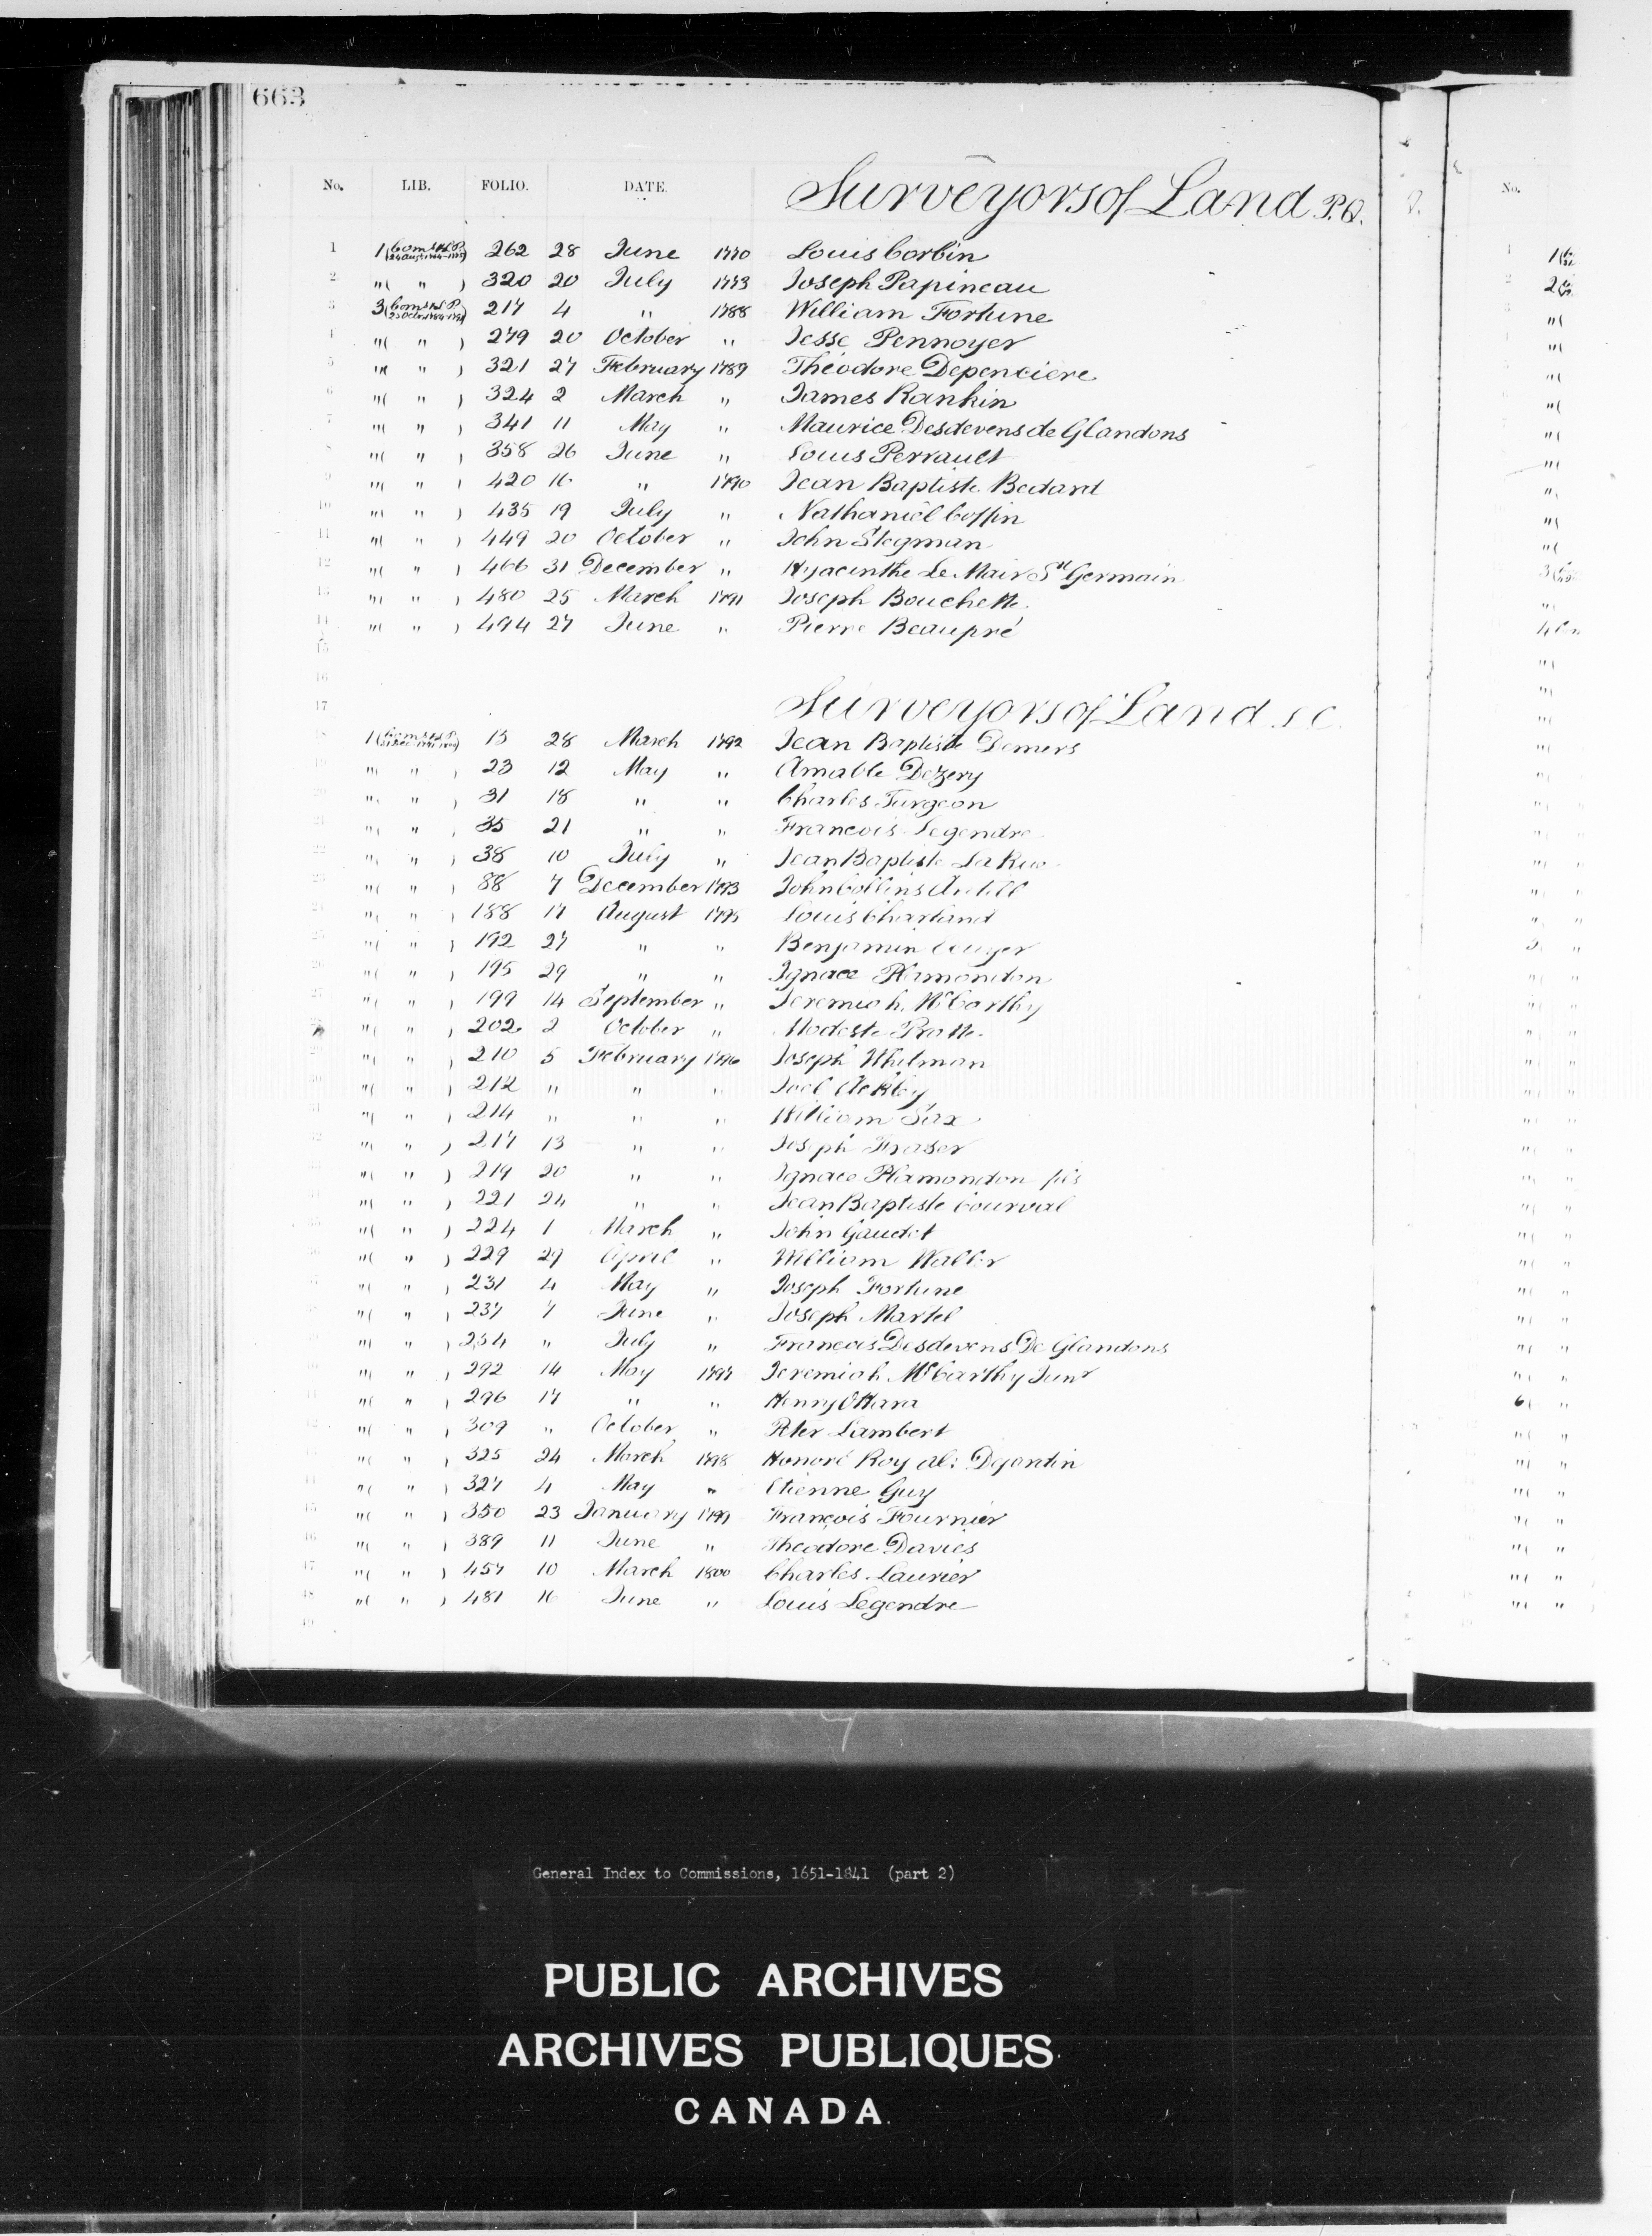 663
No. LIB. FOLIO. DATE. Surveyors of Land P.Q.
1 1 (Com & L.P. 262 28 June 1770 Louis Corbin
2 "( " ) 320 20 July 1773 Joseph Papineau
3 3 (Com & L.P. 217 4 " 1788 William Fortune
4 "( " ) 279 20 October " Jesse Pennoyer
5 "( " ) 321 27 February 1789 Théodore Depenciere
6 "( " ) 324 2 March " James Rankin
7 "( " ) 341 11 May " Maurice Desdevens de Glandons
8 "( " ) 358 26 June " Louis Perrault
9 "( " ) 420 16 " 1790 Jean Baptiste Bedard
10 "( " ) 435 19 July " Nathaniel Coffin
11 "( " ) 449 20 October " John Stegman
12 "( " ) 466 31 December " Hyacinthe Le Mair St Germain
13 "( " ) 480 25 March 1791 Joseph Bouchette
14 "( " ) 494 27 June " Pierre Beaupré
15
16
17 Surveyors of Land L C
18 1 (Com & L.P. 13 28 March 1792 Jean Baptiste Demers
19 "( " ) 23 12 May " Amable Dezery
20 "( " ) 31 18 " " Charles Turgeon
21 "( " ) 35 21 " " Francois Legendre
22 "( " ) 38 10 July " Jean Baptiste La Rue
23 "( " ) 88 7 December 1793 John Collins Antill
24 "( " ) 188 17 August 1795 Louis Charland
25 "( " ) 192 27 " " Benjamin
26 "( " ) 195 29 " " Ignace Plamondon
27 "( " ) 199 14 September " Jeremiah McCarthy
28 "( " ) 202 2 October " Modeste Pratte
29 "( " ) 210 5 February 1796 Joseph Whitman
30 "( " ) 212 " " " Joel Ackley
31 "( " ) 214 " " " William Sax
32 "( " ) 217 13 " " Joseph Fraser
33 "( " ) 219 20 " " Ignace Plamondon fils
34 "( " ) 221 24 " " Jean Baptiste Courval
35 "( " ) 224 1 March " John Gaudet
36 "( " ) 229 29 April " William Waller
37 "( " ) 231 4 May " Joseph Fortune
38 "( " ) 237 7 June " Joseph Martel
39 "( " ) 254 " July " Francois Desdevens De Glandons
40 "( " ) 292 14 May 1797 Jeremiah McCarthy Junr
41 "( " ) 296 17 " " Henry O'Hara
42 "( " ) 309 " October " Peter Lambert
43 "( " ) 325 24 March 1798 Honoré Roy al: Dejantin
44 "( " ) 327 4 May " Etienne Guy
45 "( " ) 350 23 January 1799 François Fournier
46 "( " ) 389 11 June " Theodore Davies
47 "( " ) 457 10 March 1800 Charles Laurier
48 "( " ) 481 16 June " Louis Legendre
49
No.
General Index to Commissions, 1651-1841 (part 2)
PUBLIC ARCHIVES
ARCHIVES PUBLIQUES
CANADA